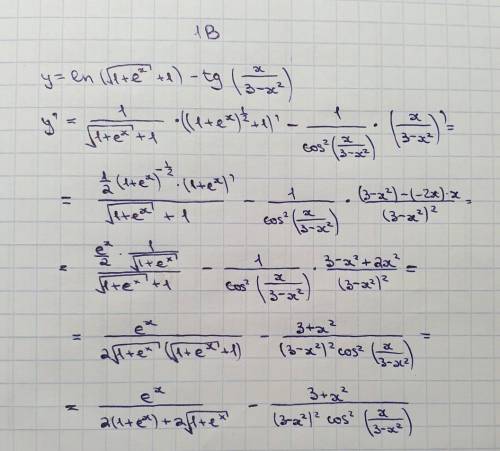 1В
y = ln(√(1+eˣ) + 1) − tg(x/(3−x²))
y' = 1/(√(1+eˣ) + 1) · ((1+eˣ)^(1/2) + 1)' − 1/cos²(x/(3−x²)) · (x/(3−x²))' =
= (1/2 (1+eˣ)^(−1/2) · (1+eˣ)')/(√(1+eˣ) + 1) − 1/cos²(x/(3−x²)) · ((3−x²)−(−2x)·x)/(3−x²)² =
= (eˣ/2 · 1/√(1+eˣ))/(√(1+eˣ) + 1) − 1/cos²(x/(3−x²)) · (3−x²+2x²)/(3−x²)² =
= eˣ/(2√(1+eˣ)(√(1+eˣ)+1)) − (3+x²)/((3−x²)² cos²(x/(3−x²))) =
= eˣ/(2(1+eˣ)+2√(1+eˣ)) − (3+x²)/((3−x²)² cos²(x/(3−x²)))